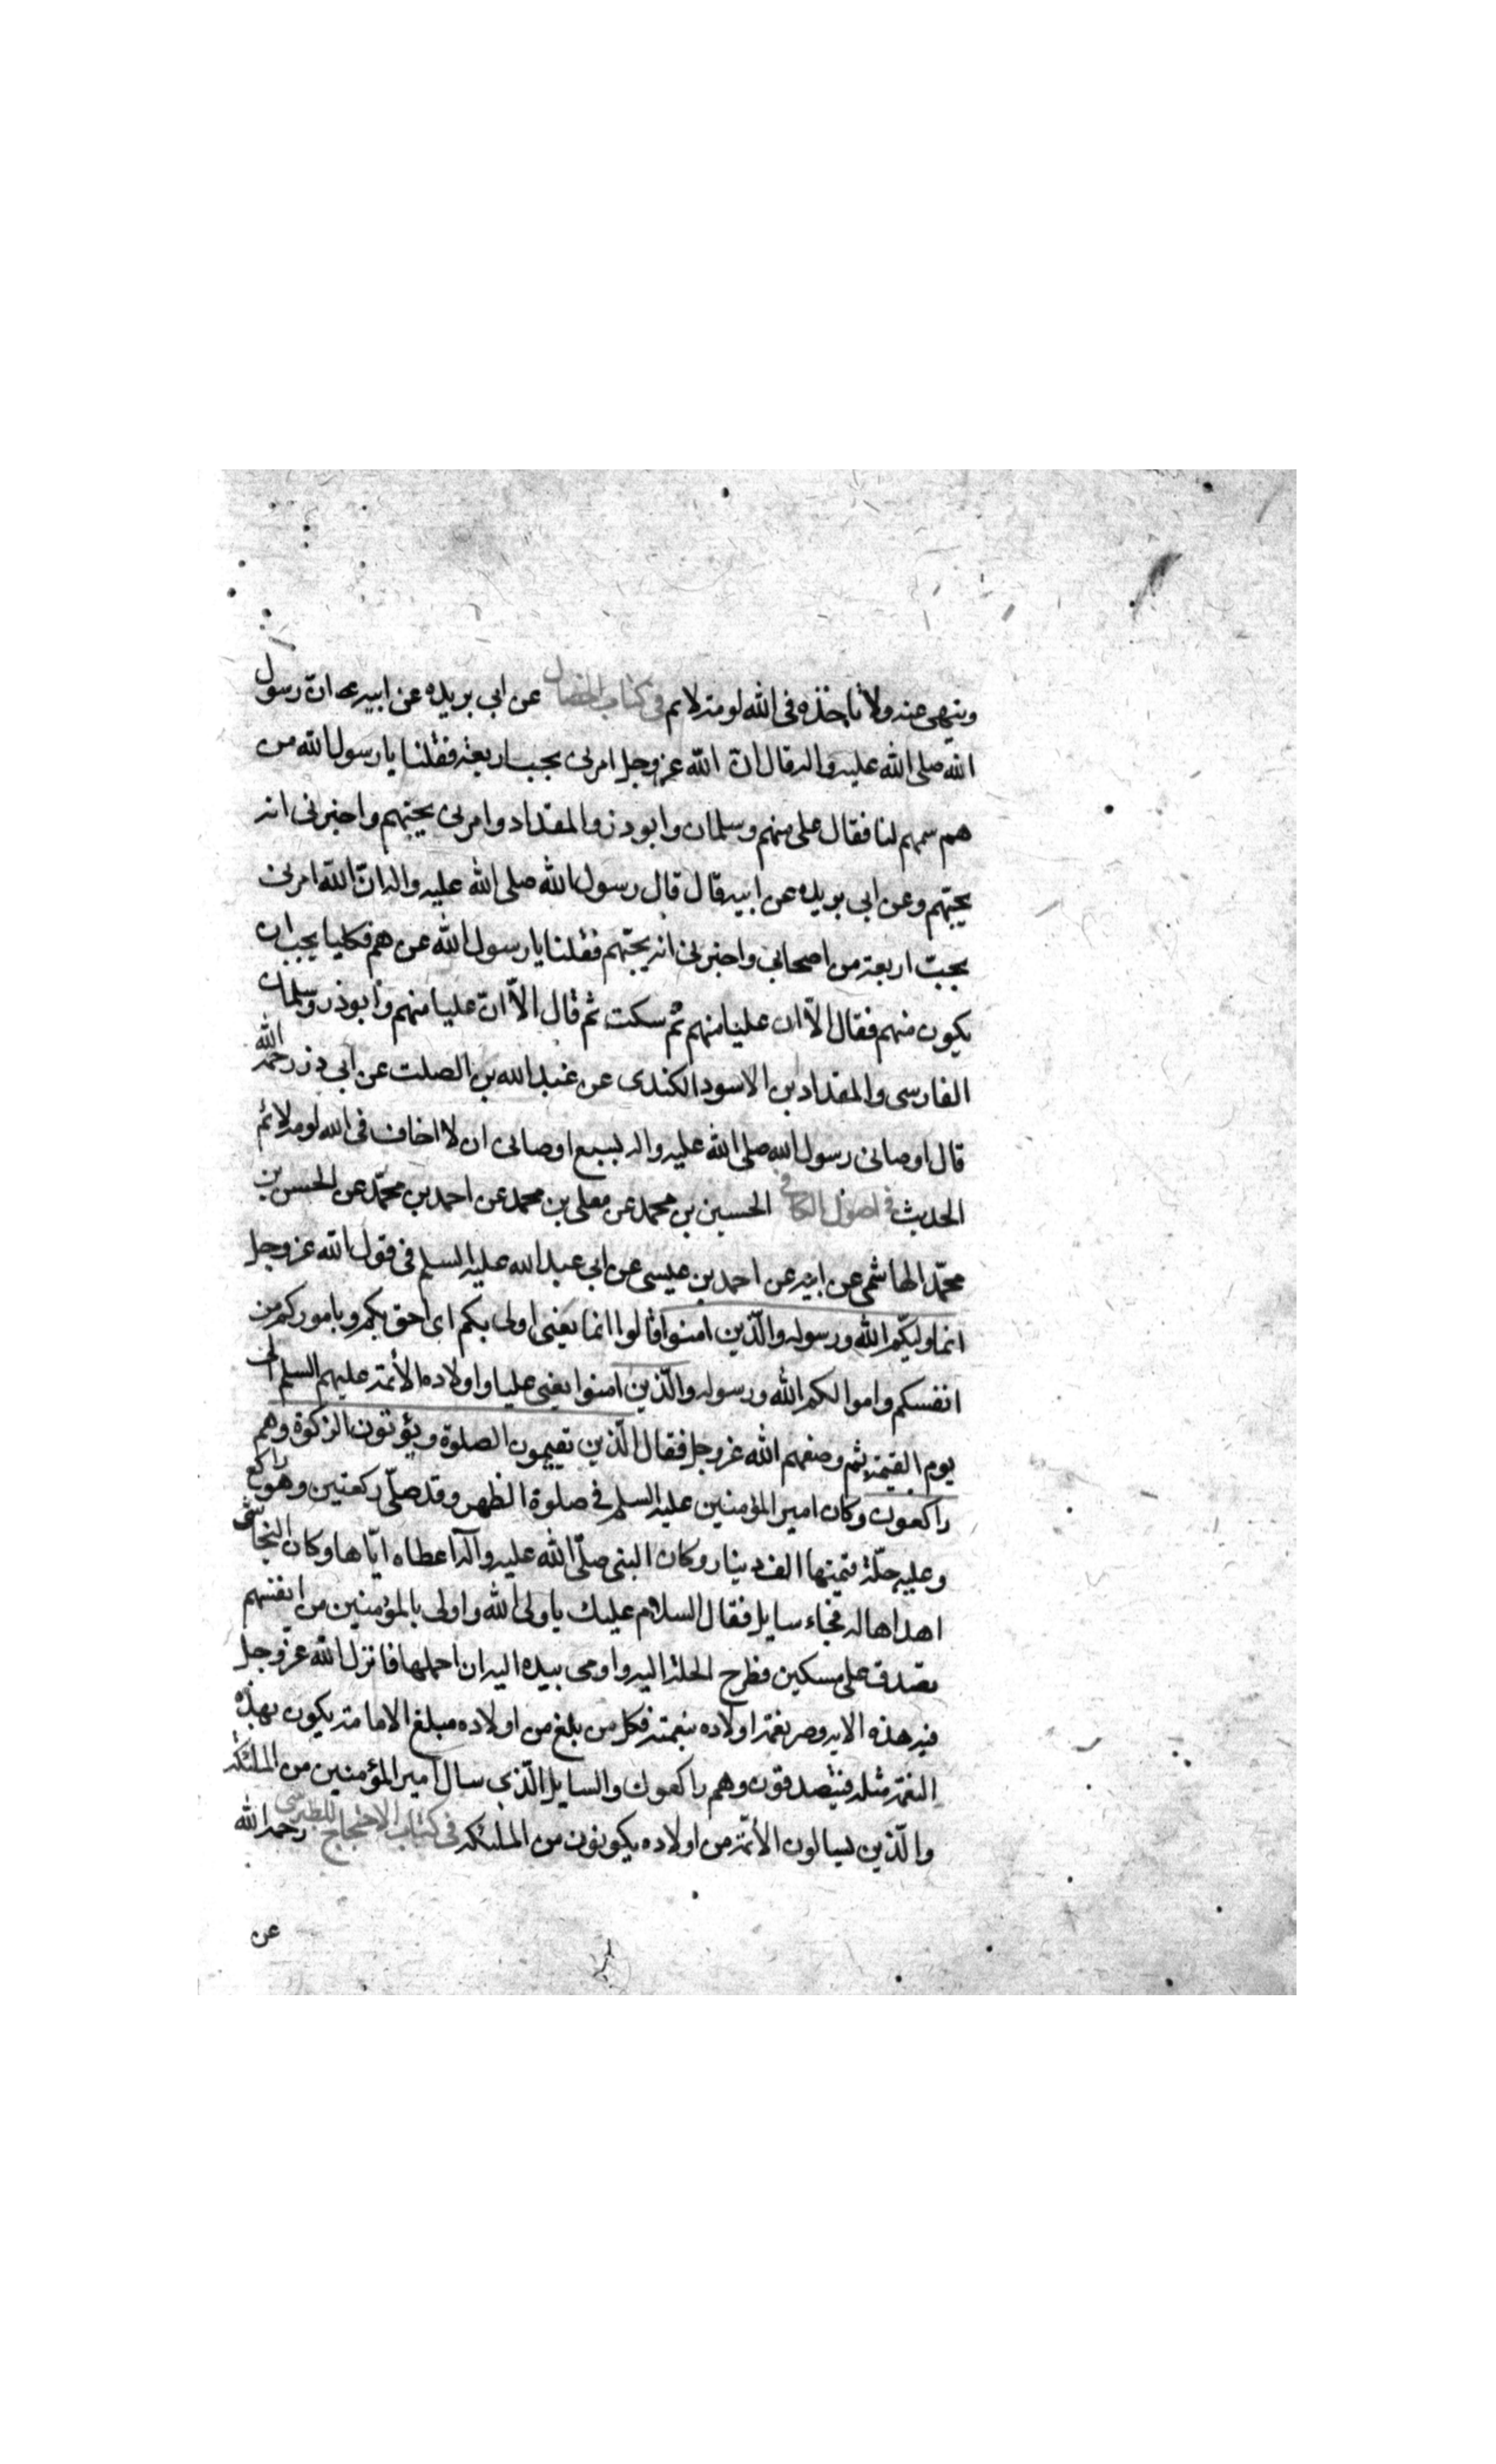 وينهى عنه ولا تاخذه فى الله لومة لائم فى كتاب الخصال عن ابى بريده عن ابيه ان رسول
الله صلى الله عليه واله قال ان الله عز وجل امرنى بحب اربعة فقلنا يا رسول الله من
هم سمهم لنا فقال على منهم وسلمان وابوذر والمقداد وامرنى بحبهم واخبرنى انه
يحبهم وعن ابى بريده عن ابيه قال قال رسول الله صلى الله عليه واله ان الله امرنى
بحبّ اربعة من اصحابى واخبرنى انه يحبّهم فقلنا يا رسول الله من هم فكلنا يحب ان
يكون منهم فقال الاّ ان عليا منهم ثم سكت ثم قال الاّ انّ عليا منهم وابوذر وسلمان
الفارسى والمقداد بن الاسود الكندى عن عبد الله بن الصلت عن ابى ذر رحمه الله
قال اوصانى رسول الله صلى الله عليه واله بسبع اوصانى ان لا اخاف فى الله لومة لائم
الحديث فى اصول الكافى الحسين بن محمد عن معلى بن محمد عن احمد بن محمّد عن الحسن بن
محمّد الهاشمى عن ابيه عن احمد بن عيسى عن ابى عبد الله عليه السلم فى قول الله عز وجل
انما وليّكم الله ورسوله والّذين امنوا قالوا انما يعنى اولى بكم اى احق بكم وباموركم من
انفسكم واموالكم الله ورسوله والّذين امنوا يعنى عليا واولاده الأئمة عليهم السلم الى
يوم القيمة ثم وصفهم الله عز وجل فقال الّذين يقيمون الصلوة ويؤتون الزكوة وهم
راكعون وكان امير المؤمنين عليه السلم فى صلوة الظهر وقد صلّى ركعتين وهو راكع
وعليه حلّة قيمتها الف دينار وكان النبى صلّى الله عليه وآله اعطاه ايّاها وكان النجاشى
اهداها له فجاء سايل فقال السلام عليك يا ولى الله واولى بالمؤمنين من انفسهم
تصدق على مسكين فطرح الحلة اليه واومى بيده اليه ان احملها فانزل الله عز وجل
فيه هذه الايه وصير نعمة اولاده بنعمته فكل من بلغ من اولاده مبلغ الامامة يكون بهذه
النعمة مثله فيتصدقون وهم راكعون والسايل الّذى سال امير المؤمنين من الملئكة
والّذين يسالون الأئمّة من اولاده يكونون من الملئكة فى كتاب الاحتجاج للطبرسى رحمه الله
عن